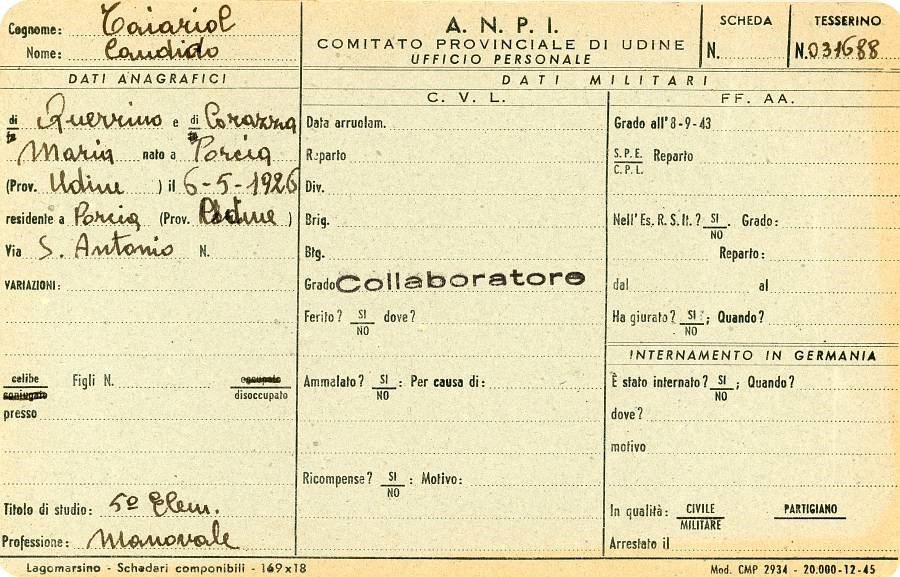 Cognome: Taiariol
Nome: Candido
A. N. P. I.
COMITATO PROVINCIALE DI UDINE
UFFICIO PERSONALE
SCHEDA
N.
TESSERINO
N. 031688
DATI ANAGRAFICI
di Querrino e di Corazza
Maria nato a Porcia
(Prov. Udine ) il 6-5-1926
residente a Porcia (Prov. Udine )
Via S. Antonio N.
VARIAZIONI:
celibe
coniugato
Figli N.
occupato
disoccupato
presso
Titolo di studio: 5º Elem.
Professione: Manovale
DATI MILITARI
C. V. L.
Data arruolam.
Reparto
Div.
Brig.
Btg.
Grado Collaboratore
Ferito? SI
NO
dove?
Ammalato? SI
NO
: Per causa di:
Ricompense? SI
NO
: Motivo:
FF. AA.
Grado all'8-9-43
S.P.E.
C.P.L.
Reparto
Nell'Es. R. S. It.? SI
NO
. Grado:
Reparto:
dal al
Ha giurato? SI
NO
; Quando?
INTERNAMENTO IN GERMANIA
È stato internato? SI
NO
; Quando?
dove?
motivo
In qualità: CIVILE
MILITARE
PARTIGIANO
Arrestato il
Lagomarsino - Schedari componibili - 169x18
Mod. CMP 2934 - 20.000-12-45